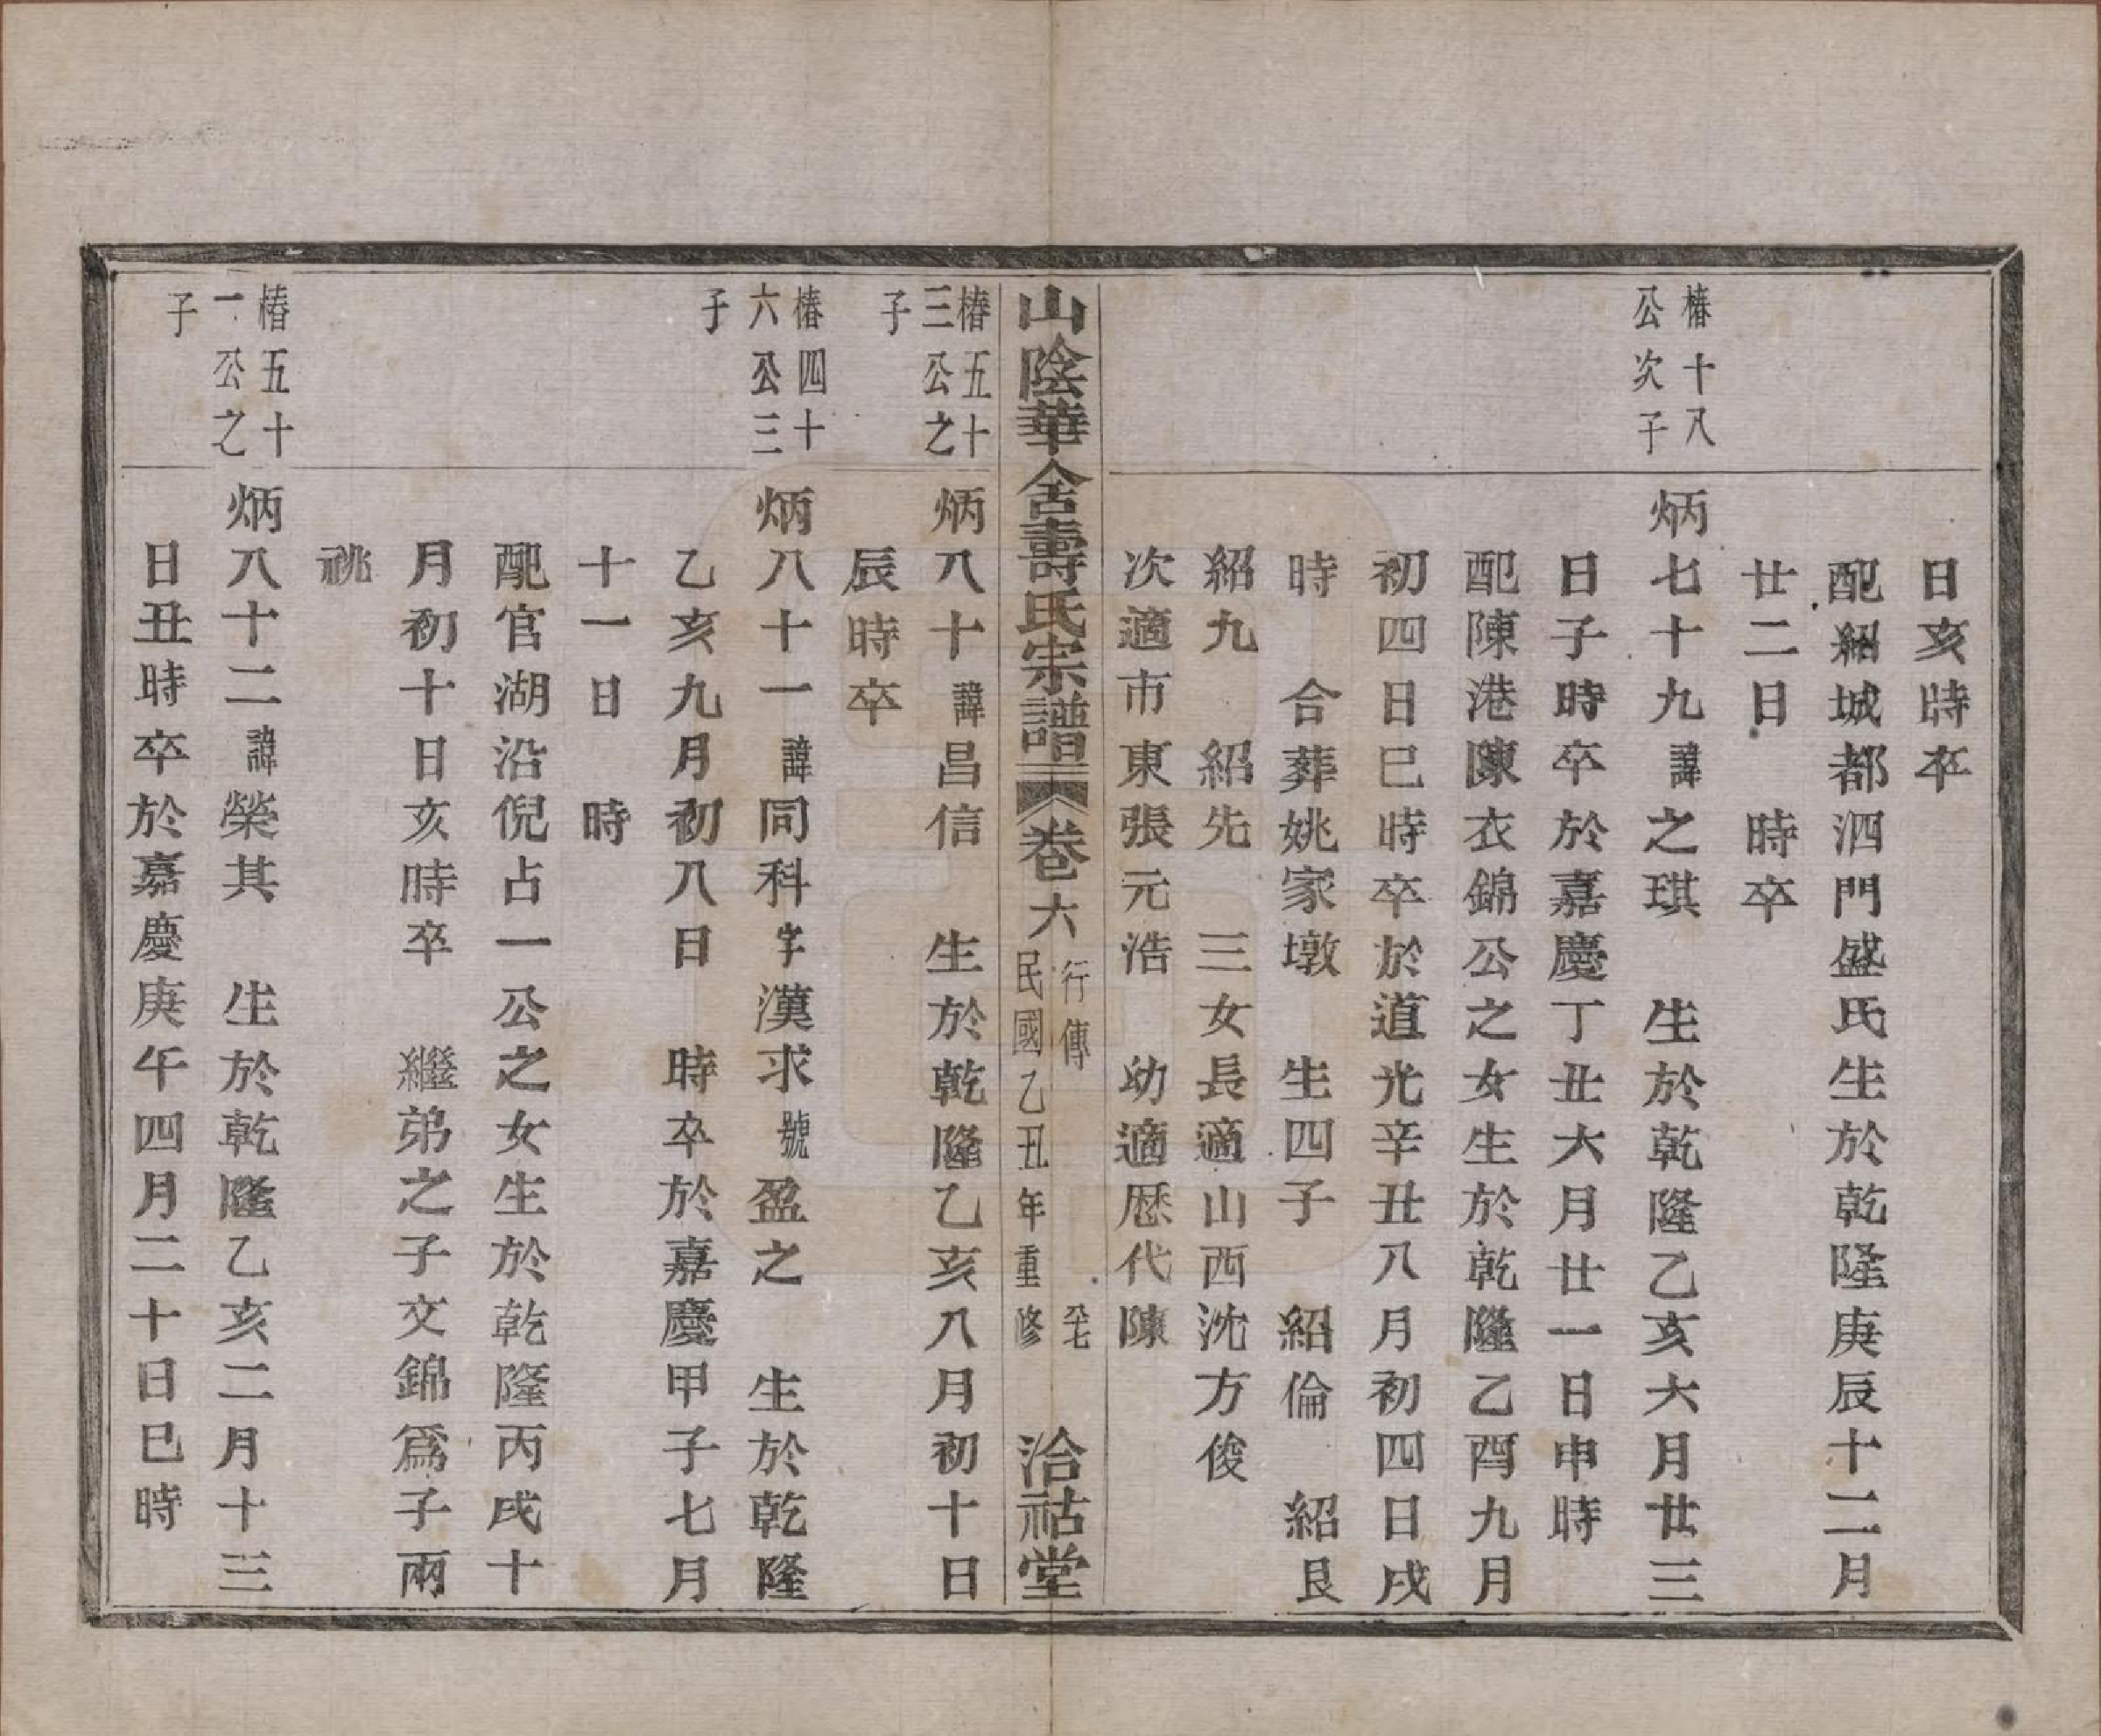 日亥時卒
配紹城都泗門盛氏生於乾隆庚辰十二月
廿二日　時卒
椿十八
公次子
炳七十九諱之琪　生於乾隆乙亥六月廿三
日子時卒於嘉慶丁丑六月廿一日申時
配陳港陳衣錦公之女生於乾隆乙酉九月
初四日巳時卒於道光辛丑八月初四日戌
時　合葬姚家墩　生四子　紹倫　紹良
紹九　紹先　三女長適山西沈方俊
次適市東張元浩　幼適歷代陳
山陰華舍壽氏宗譜
卷六
行傳
民國乙丑年重修
洽祜堂
椿五十
三公之
子
炳八十諱昌信　生於乾隆乙亥八月初十日
辰時卒
椿四十
六公三
子
炳八十一諱同科字漢求號盈之　生於乾隆
乙亥九月初八日　時卒於嘉慶甲子七月
十一日　時
配官湖沿倪占一公之女生於乾隆丙戌十
月初十日亥時卒　繼弟之子文錦爲子兩
祧
椿五十
一公之
子
炳八十二諱榮其　生於乾隆乙亥二月十三
日丑時卒於嘉慶庚午四月二十日巳時